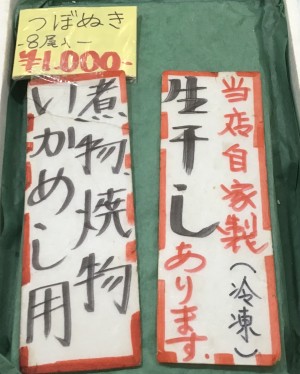 つぼぬき
-8尾入-
¥1,000-
煮物焼物
いかめし用
当店自家製
(冷凍)
生干し
あります.